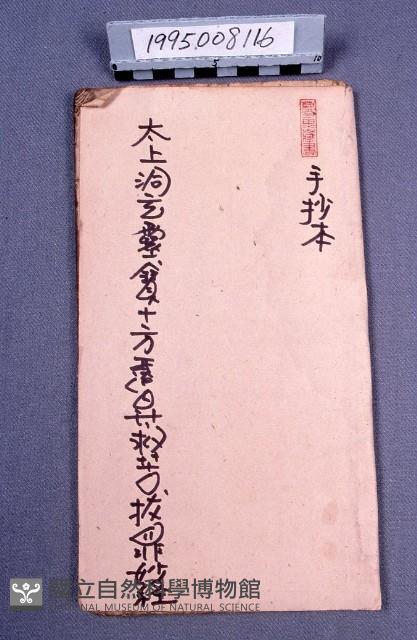 1995.008116
5
10
手抄本
太上洞玄靈寶十方靈具救苦拔罪妙經
國立自然科學博物館
NATIONAL MUSEUM OF NATURAL SCIENCE